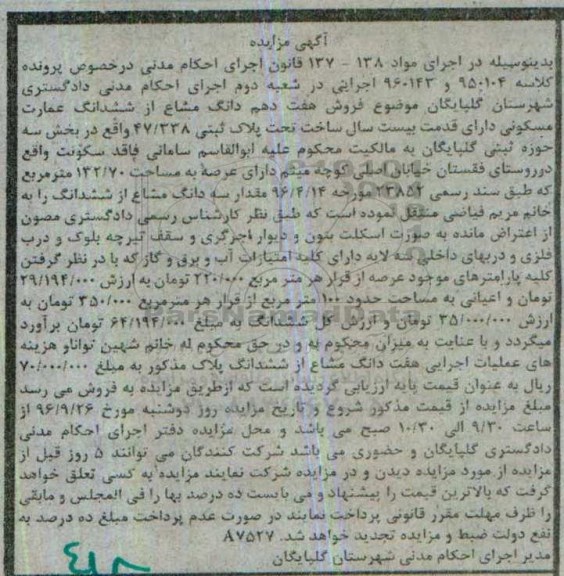 آگهی مزایده
بدینوسیله در اجرای مواد ۱۳۸ - ۱۳۷ قانون اجرای احکام مدنی درخصوص پرونده
کلاسه ۹۵۰۱۰۴ و ۹۶۰۱۴۳ اجرایی در شعبه دوم اجرای احکام مدنی دادگستری
شهرستان گلپایگان موضوع فروش هفت دهم دانگ مشاع از ششدانگ عمارت
مسکونی دارای قدمت بیست سال ساخت تحت پلاک ثبتی ۴۷/۳۳۸ واقع در بخش سه
حوزه ثبتی گلپایگان به مالکیت محکوم علیه ابوالقاسم سامانی فاقد سکونت واقع
درروستای فقستان خیابان اصلی کوچه میثم دارای عرصه به مساحت ۱۳۲/۷۰ مترمربع
که طبق سند رسمی ۲۳۸۵۲ مورخه ۹۶/۴/۱۴ مقدار سه دانگ مشاع از ششدانگ را به
خانم مریم فیاضی منتقل نموده است که طبق نظر کارشناس رسمی دادگستری مصون
از اعتراض مانده به صورت اسکلت بتون و دیوار آجرگری و سقف تیرچه بلوک و درب
فلزی و دربهای داخلی سه لایه دارای کلیه امتیازات آب و برق و گاز که با در نظر گرفتن
کلیه پارامترهای موجود عرصه از قرار هر متر مربع ۲۲۰/۰۰۰ تومان به ارزش ۲۹/۱۹۴/۰۰۰
تومان و اعیانی به مساحت حدود ۱۰۰ متر مربع از قرار هر مترمربع ۳۵۰/۰۰۰ تومان به
ارزش ۳۵/۰۰۰/۰۰۰ تومان و ارزش کل ششدانگ به مبلغ ۶۴/۱۹۴/۰۰۰ تومان برآورد
میگردد و با عنایت به میزان محکوم به و در حق محکوم له خانم شهین تواناو هزینه
های عملیات اجرایی هفت دانگ مشاع از ششدانگ پلاک مذکور به مبلغ ۷۰/۰۰۰/۰۰۰
ریال به عنوان قیمت پایه ارزیابی گردیده است که ازطریق مزایده به فروش می رسد
مبلغ مزایده از قیمت مذکور شروع و تاریخ مزایده روز دوشنبه مورخ ۹۶/۹/۲۶ از
ساعت ۹/۳۰ الی ۱۰/۳۰ صبح می باشد و محل مزایده دفتر اجرای احکام مدنی
دادگستری گلپایگان و حضوری می باشد شرکت کنندگان می توانند ۵ روز قبل از
مزایده از مورد مزایده دیدن و در مزایده شرکت نمایند مزایده به کسی تعلق خواهد
گرفت که بالاترین قیمت را پیشنهاد و می بایست ده درصد بها را فی المجلس و مابقی
را ظرف مهلت مقرر قانونی پرداخت نمایند در صورت عدم پرداخت مبلغ ده درصد به
نفع دولت ضبط و مزایده تجدید خواهد شد. ۸۷۵۲۷
مدیر اجرای احکام مدنی شهرستان گلپایگان
ParsNamadData